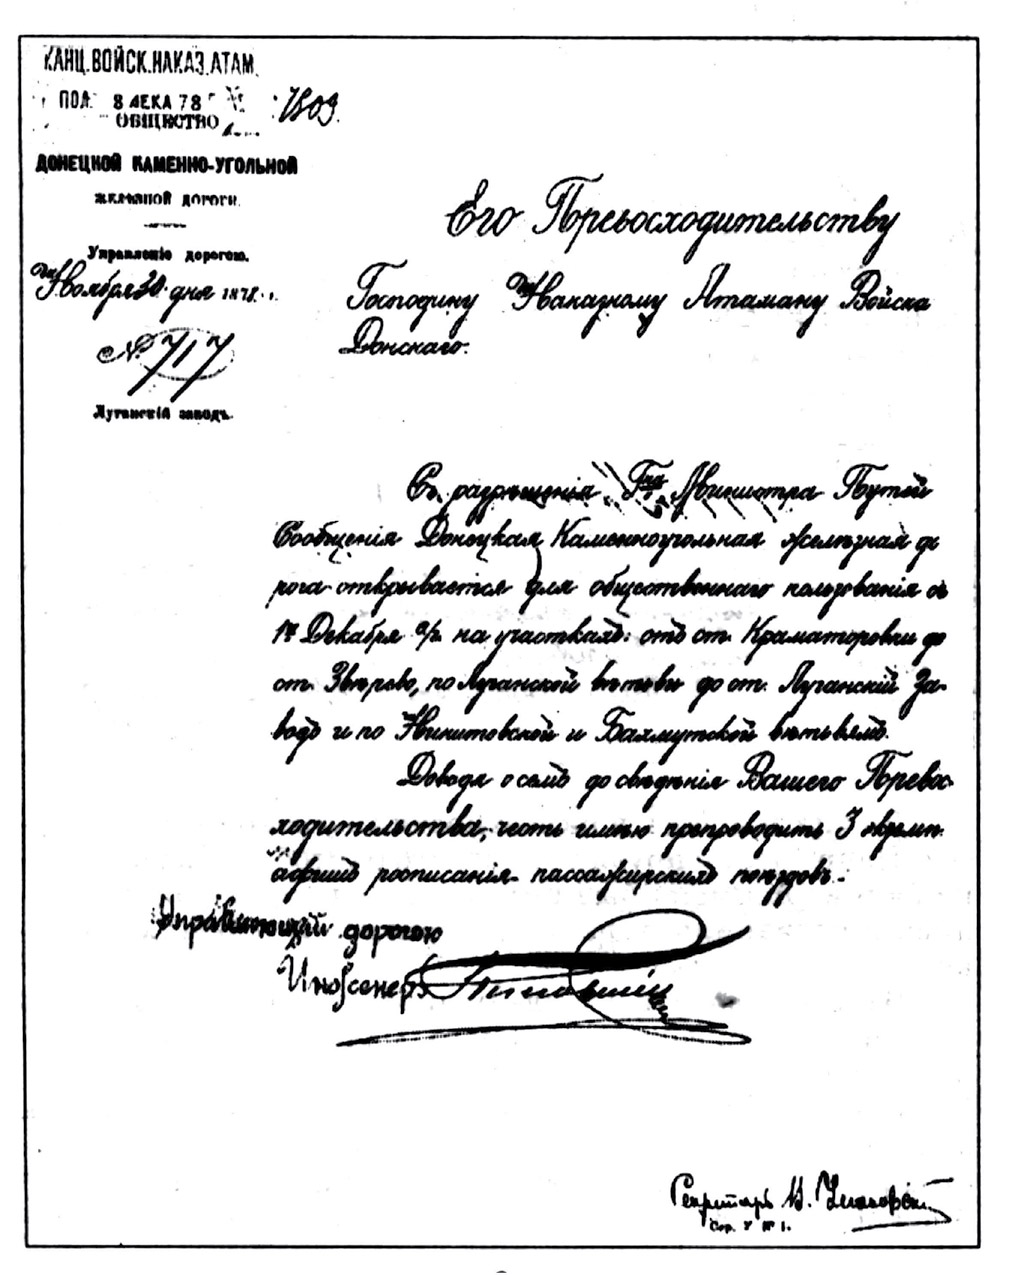 КАНЦ.ВОЙСК.НАКАЗ.АТАМ.
ПОЛ. 8 ДЕКА 78
7809.
ОБЩЕСТВО
ДОНЕЦКОЙ КАМЕННО-УГОЛЬНОЙ
ЖЕЛѢЗНОЙ ДОРОГИ.
Управленіе дорогою.
Ноября 30 дня 1878 г.
№ 717
Луганскій заводъ.
Его Превосходительству
Господину Наказному Атаману Войска
Донскаго.
Съ разрѣшенія Г-на Министра Путей
Сообщенія Донецкая Каменноугольная желѣзная до
рога открывается для общественнаго пользованія съ
Декабря с/г на участкахъ: отъ ст. Краматоровки до
ст. Звѣрево, по Луганской вѣтви до ст. Луганскій За-
водъ и по Никитовской и Бахмутской вѣтвямъ.
Доводя о семъ до свѣдѣнія Вашего Превос-
ходительства, честь имѣю препроводить 3 экземп-
росписанія пассажирскихъ поѣздовъ.
Управляющій дорогою
Инженеръ
Секретарь